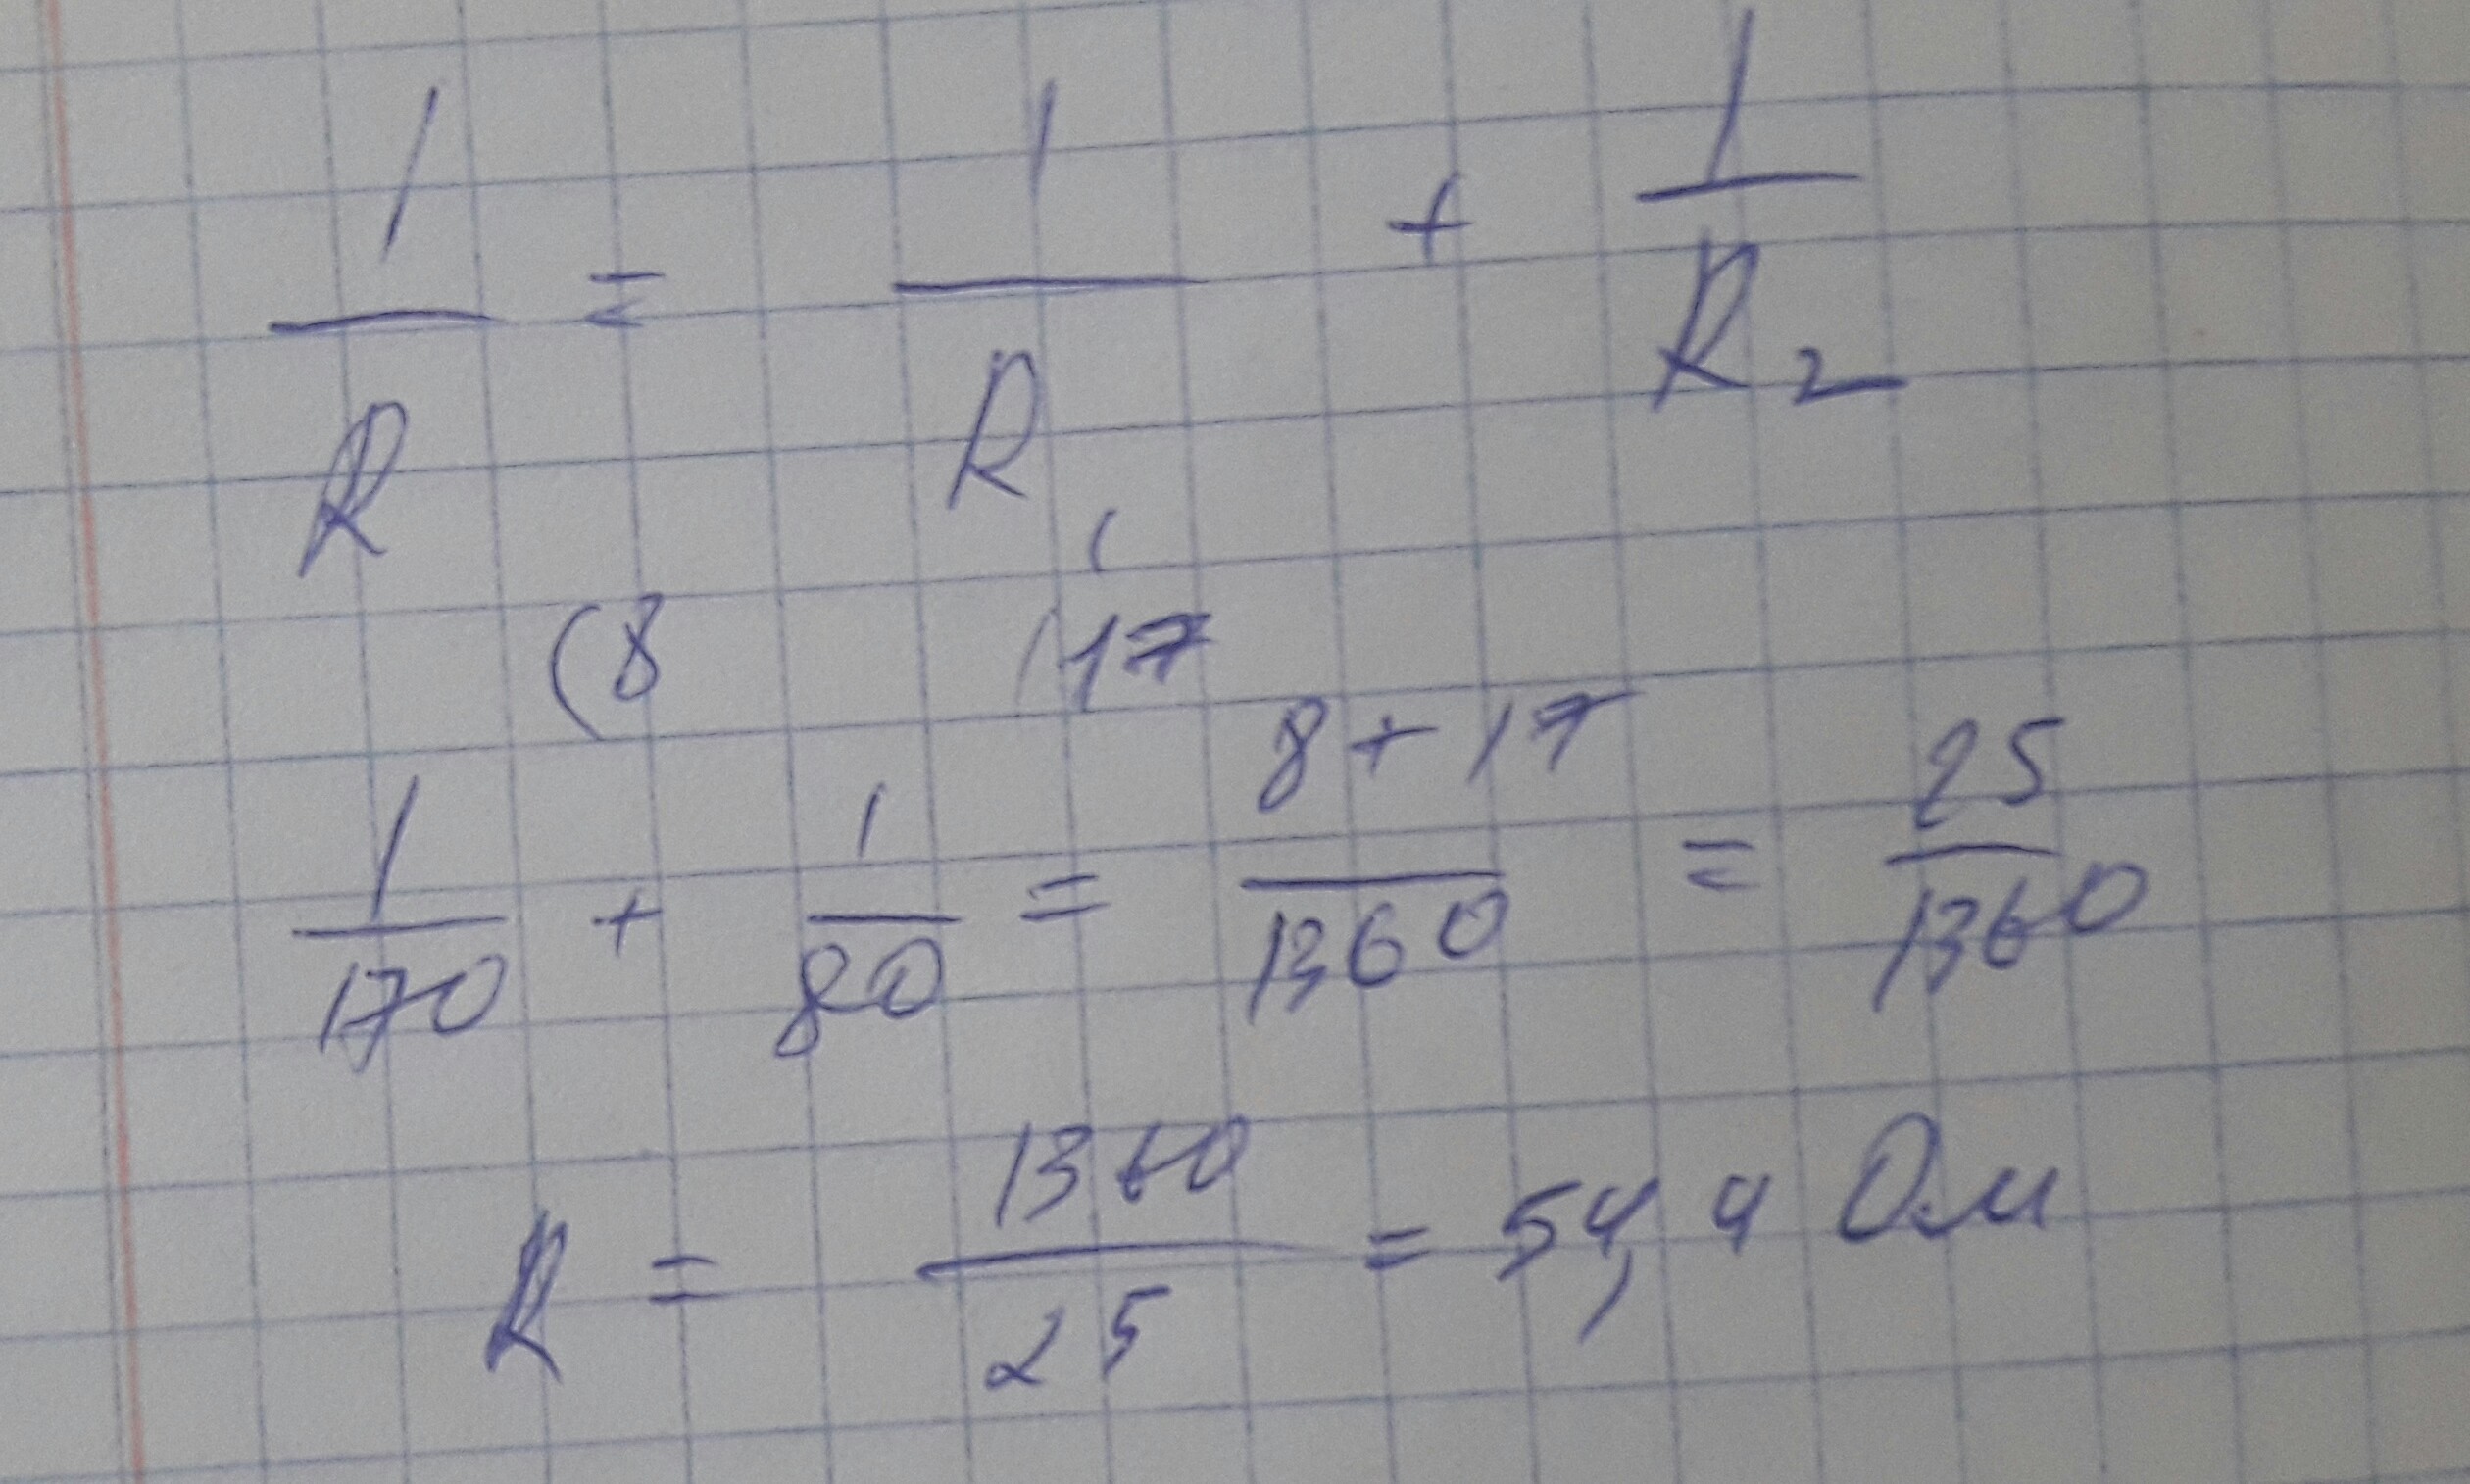 1/R = 1/R₁ + 1/R₂
(8 (17
1/170 + 1/80 = 8+17/1360 = 25/1360
R = 1360/25 = 54,4 Ом